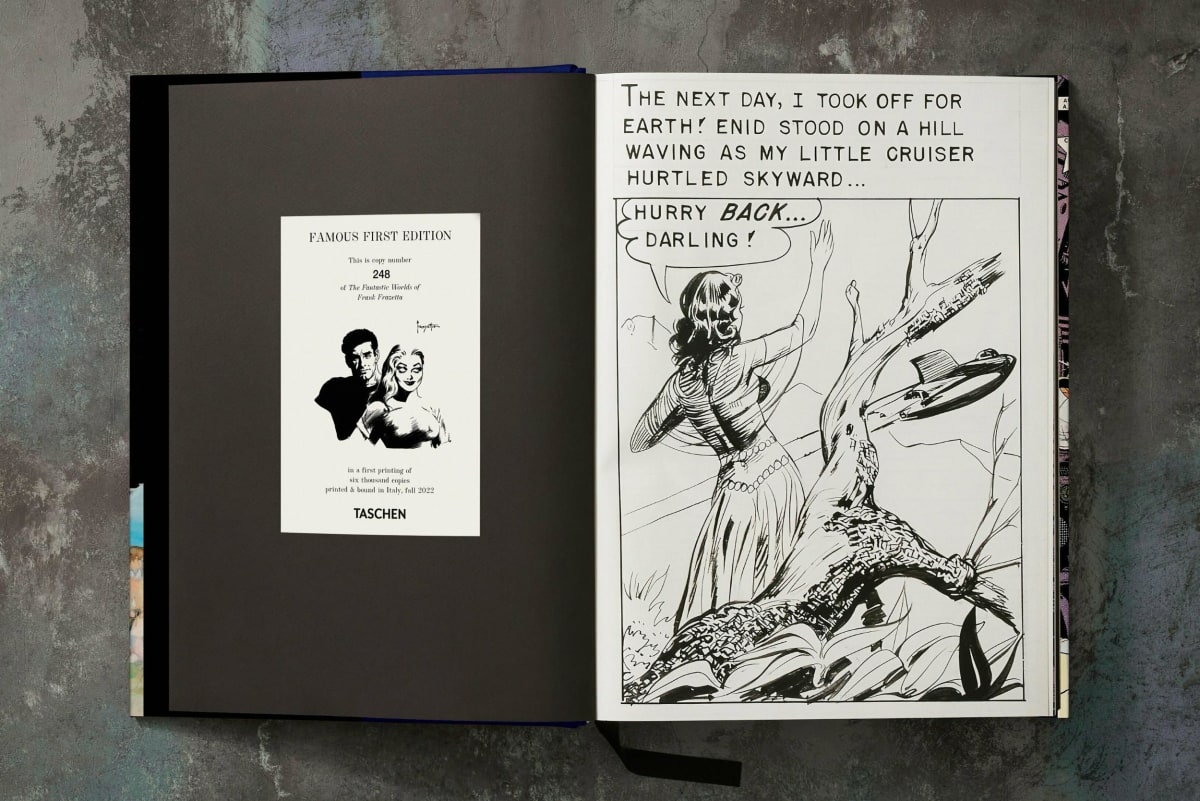 FAMOUS FIRST EDITION
This is copy number
248
of The Fantastic Worlds of
Frank Frazetta
frazetta
in a first printing of
six thousand copies
printed & bound in Italy, fall 2022
TASCHEN
THE NEXT DAY, I TOOK OFF FOR
EARTH! ENID STOOD ON A HILL
WAVING AS MY LITTLE CRUISER
HURTLED SKYWARD...
HURRY BACK...
DARLING!